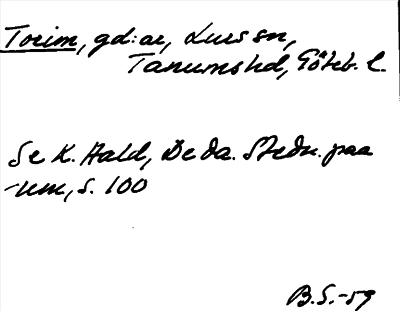 Torim, gd:ar, Lurs sn,
Tanumshd, Göteb. l.
Se K. Hald, De da. Stedn. paa
-um, s. 100
B.S.-59